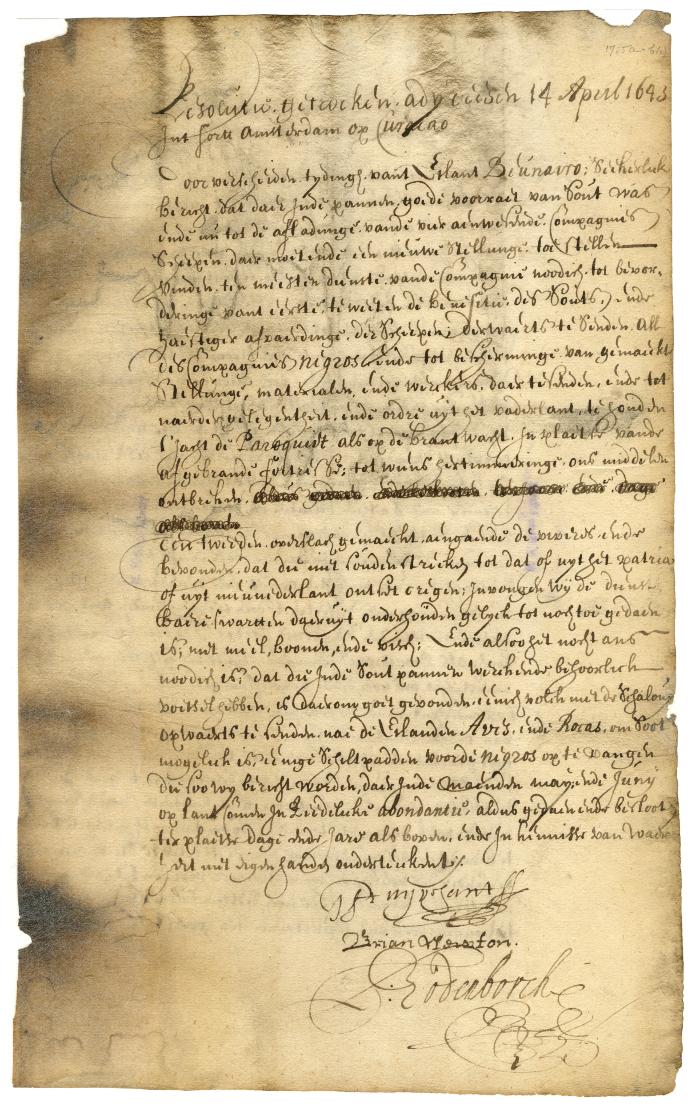 Resolutie getrocken ady desen 14 April 1643
Int fort Amsterdam op Curacao
Door verscheiden tydingh vant Eilant Beunairo; Seekerlick
bericht dat daer Inde pannen goede voorraet van Sout was
ende nu tot de afladinge vande vier aenwesende Compagnies
Scheepen daer moetende een nieuwe Stellinge toe stellen
Vinden ten meesten dienste vande Compagnie noodich tot bevor-
deringe vant eerste te weeten de Benefitie des Souts, ende
haestiger afvaerdinge der Scheepen, derwaerts te Senden All
des Compagnies negros ende tot bescherminge van gemaeckte
Stellinge, materialen, ende werckers, daer te senden, ende tot
naerder gelegentheit, ende ordre uyt het vaderlant, te houden
t'Jacht de Paroquidt als op de brantwacht. In plaetse vande
afgebrande fortresse; tot wiens hertimmeringe ons middelen
ontbreken.
Een twerden overslach gemaeckt aengaende de vivres ende
bevonden dat die niet souden strecken tot dat of uyt het patria
of uyt nieunederlant ontset cregen; Invougen wy de
swarten daeruyt onderhouden gelyck tot noch toe gedaen
is, met meel, boonen, ende visch; Ende alsoo het nocht ans
noodich is, dat die Inde Sout pannen werckende behoorlick
voetsel hebben, is daerom goet gevonden eenich volck met de Schaloup
opwaerts te senden nae de Eilanden Aves ende Rocas, om Soot
mogelick is, eenige Schiltpadden voor de negros op te vangen
die soo wy bericht worden, daer Inde maenden may ende Juny
op lant comen In Redelicke abondantie, aldus gedaen ende besloot
ter plaetse dage ende Jare als boven, ende In kennisse van waer
heit met eigen handen onderteickent
Brian Newton.
Rodenborch